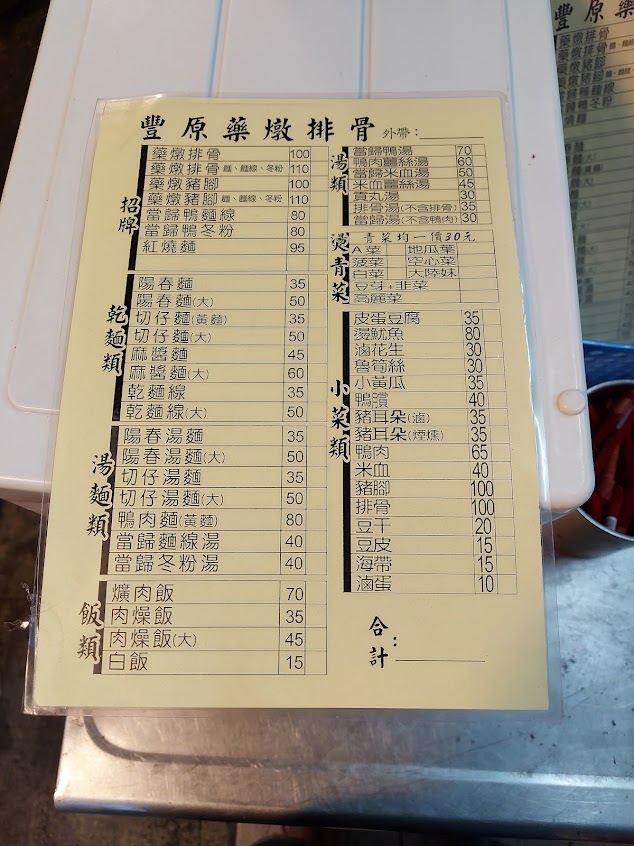 豐原藥燉排骨 外帶：
招牌
藥燉排骨 100
藥燉排骨 麵、麵線、冬粉 110
藥燉豬腳 100
藥燉豬腳 麵、麵線、冬粉 110
當歸鴨麵線 80
當歸鴨冬粉 80
紅燒麵 95
乾麵類
陽春麵 35
陽春麵(大) 50
切仔麵(黃麵) 35
切仔麵(大) 50
麻醬麵 45
麻醬麵(大) 60
乾麵線 35
乾麵線(大) 50
湯麵類
陽春湯麵 35
陽春湯麵(大) 50
切仔湯麵 35
切仔湯麵(大) 50
鴨肉麵(黃麵) 80
當歸麵線湯 40
當歸冬粉湯 40
飯類
爌肉飯 70
肉燥飯 35
肉燥飯(大) 45
白飯 15
湯類
當歸鴨湯 70
鴨肉薑絲湯 60
當歸米血湯 50
米血薑絲湯 45
貢丸湯 30
排骨湯(不含排骨) 35
當歸湯(不含鴨肉) 30
燙青菜
青菜均一價30元
A菜 地瓜菜
菠菜 空心菜
白菜 大陸妹
豆芽，韭菜
高麗菜
小菜類
皮蛋豆腐 35
燙魷魚 80
滷花生 30
魯筍絲 30
小黃瓜 35
鴨胗 40
豬耳朵(滷) 35
豬耳朵(煙燻) 35
鴨肉 65
米血 40
豬腳 100
排骨 100
豆干 20
豆皮 15
海帶 15
滷蛋 10
合計：
豐原藥
藥燉排骨